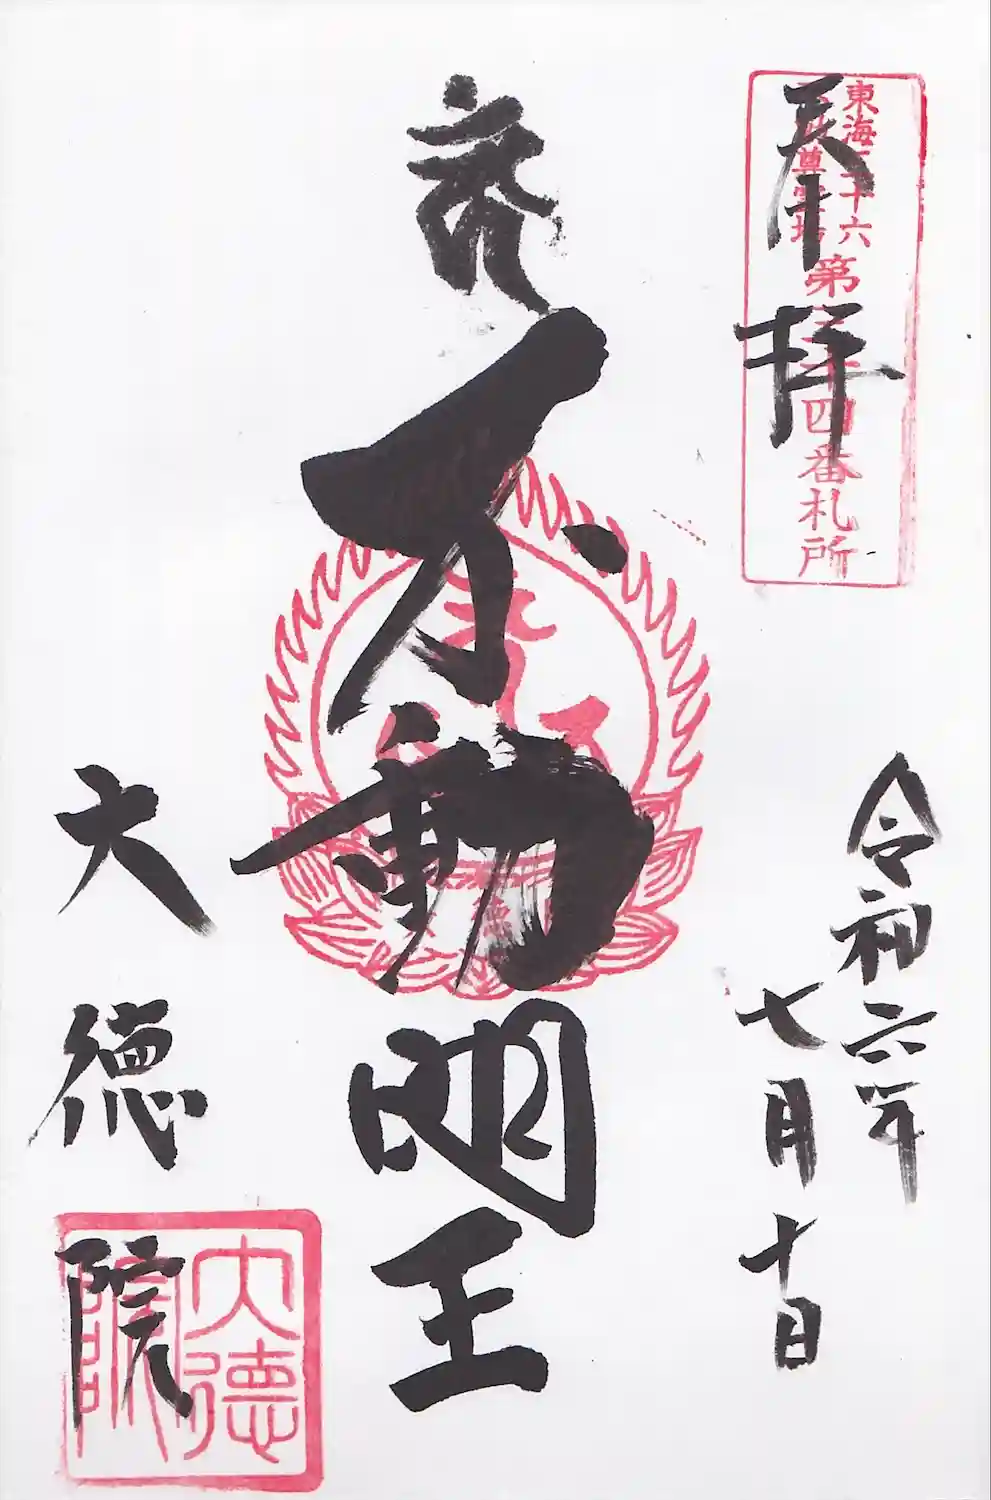 奉拝
東海三十六
不動尊霊場
第三十四番札所
令和六年
七月十日
不動明王
大徳院
大徳院